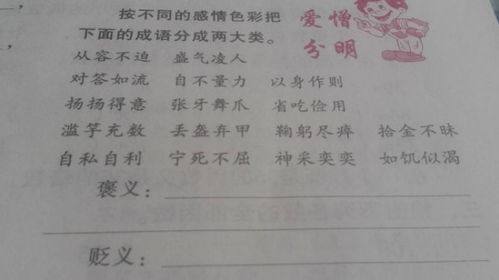 按不同的感情色彩把
下面的成语分成两大类。
爱憎
分明
从容不迫 盛气凌人
对答如流 自不量力 以身作则
扬扬得意 张牙舞爪 省吃俭用
滥竽充数 丢盔弃甲 鞠躬尽瘁 拾金不昧
自私自利 宁死不屈 神采奕奕 如饥似渴
褒义：
贬义：